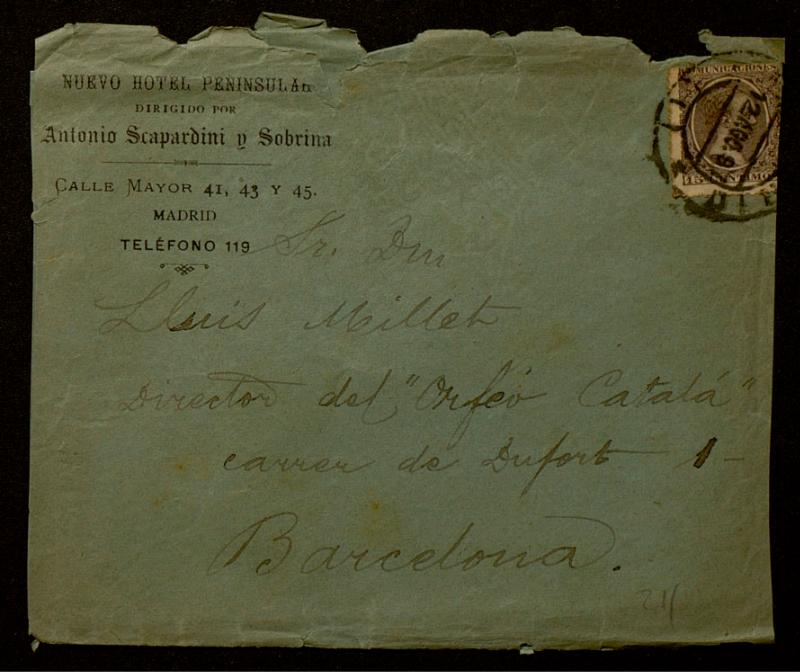 NUEVO HOTEL PENINSULAR
DIRIGIDO POR
Antonio Scapardini y Sobrina
CALLE MAYOR 41, 43 Y 45.
MADRID
TELÉFONO 119
COMUNICACIONES
15 CENTIMOS
Sr. Dn
Lluis Millet
Director del "Orfeó Catalá"
carrer de Dufort 1 -
Barcelona.
211